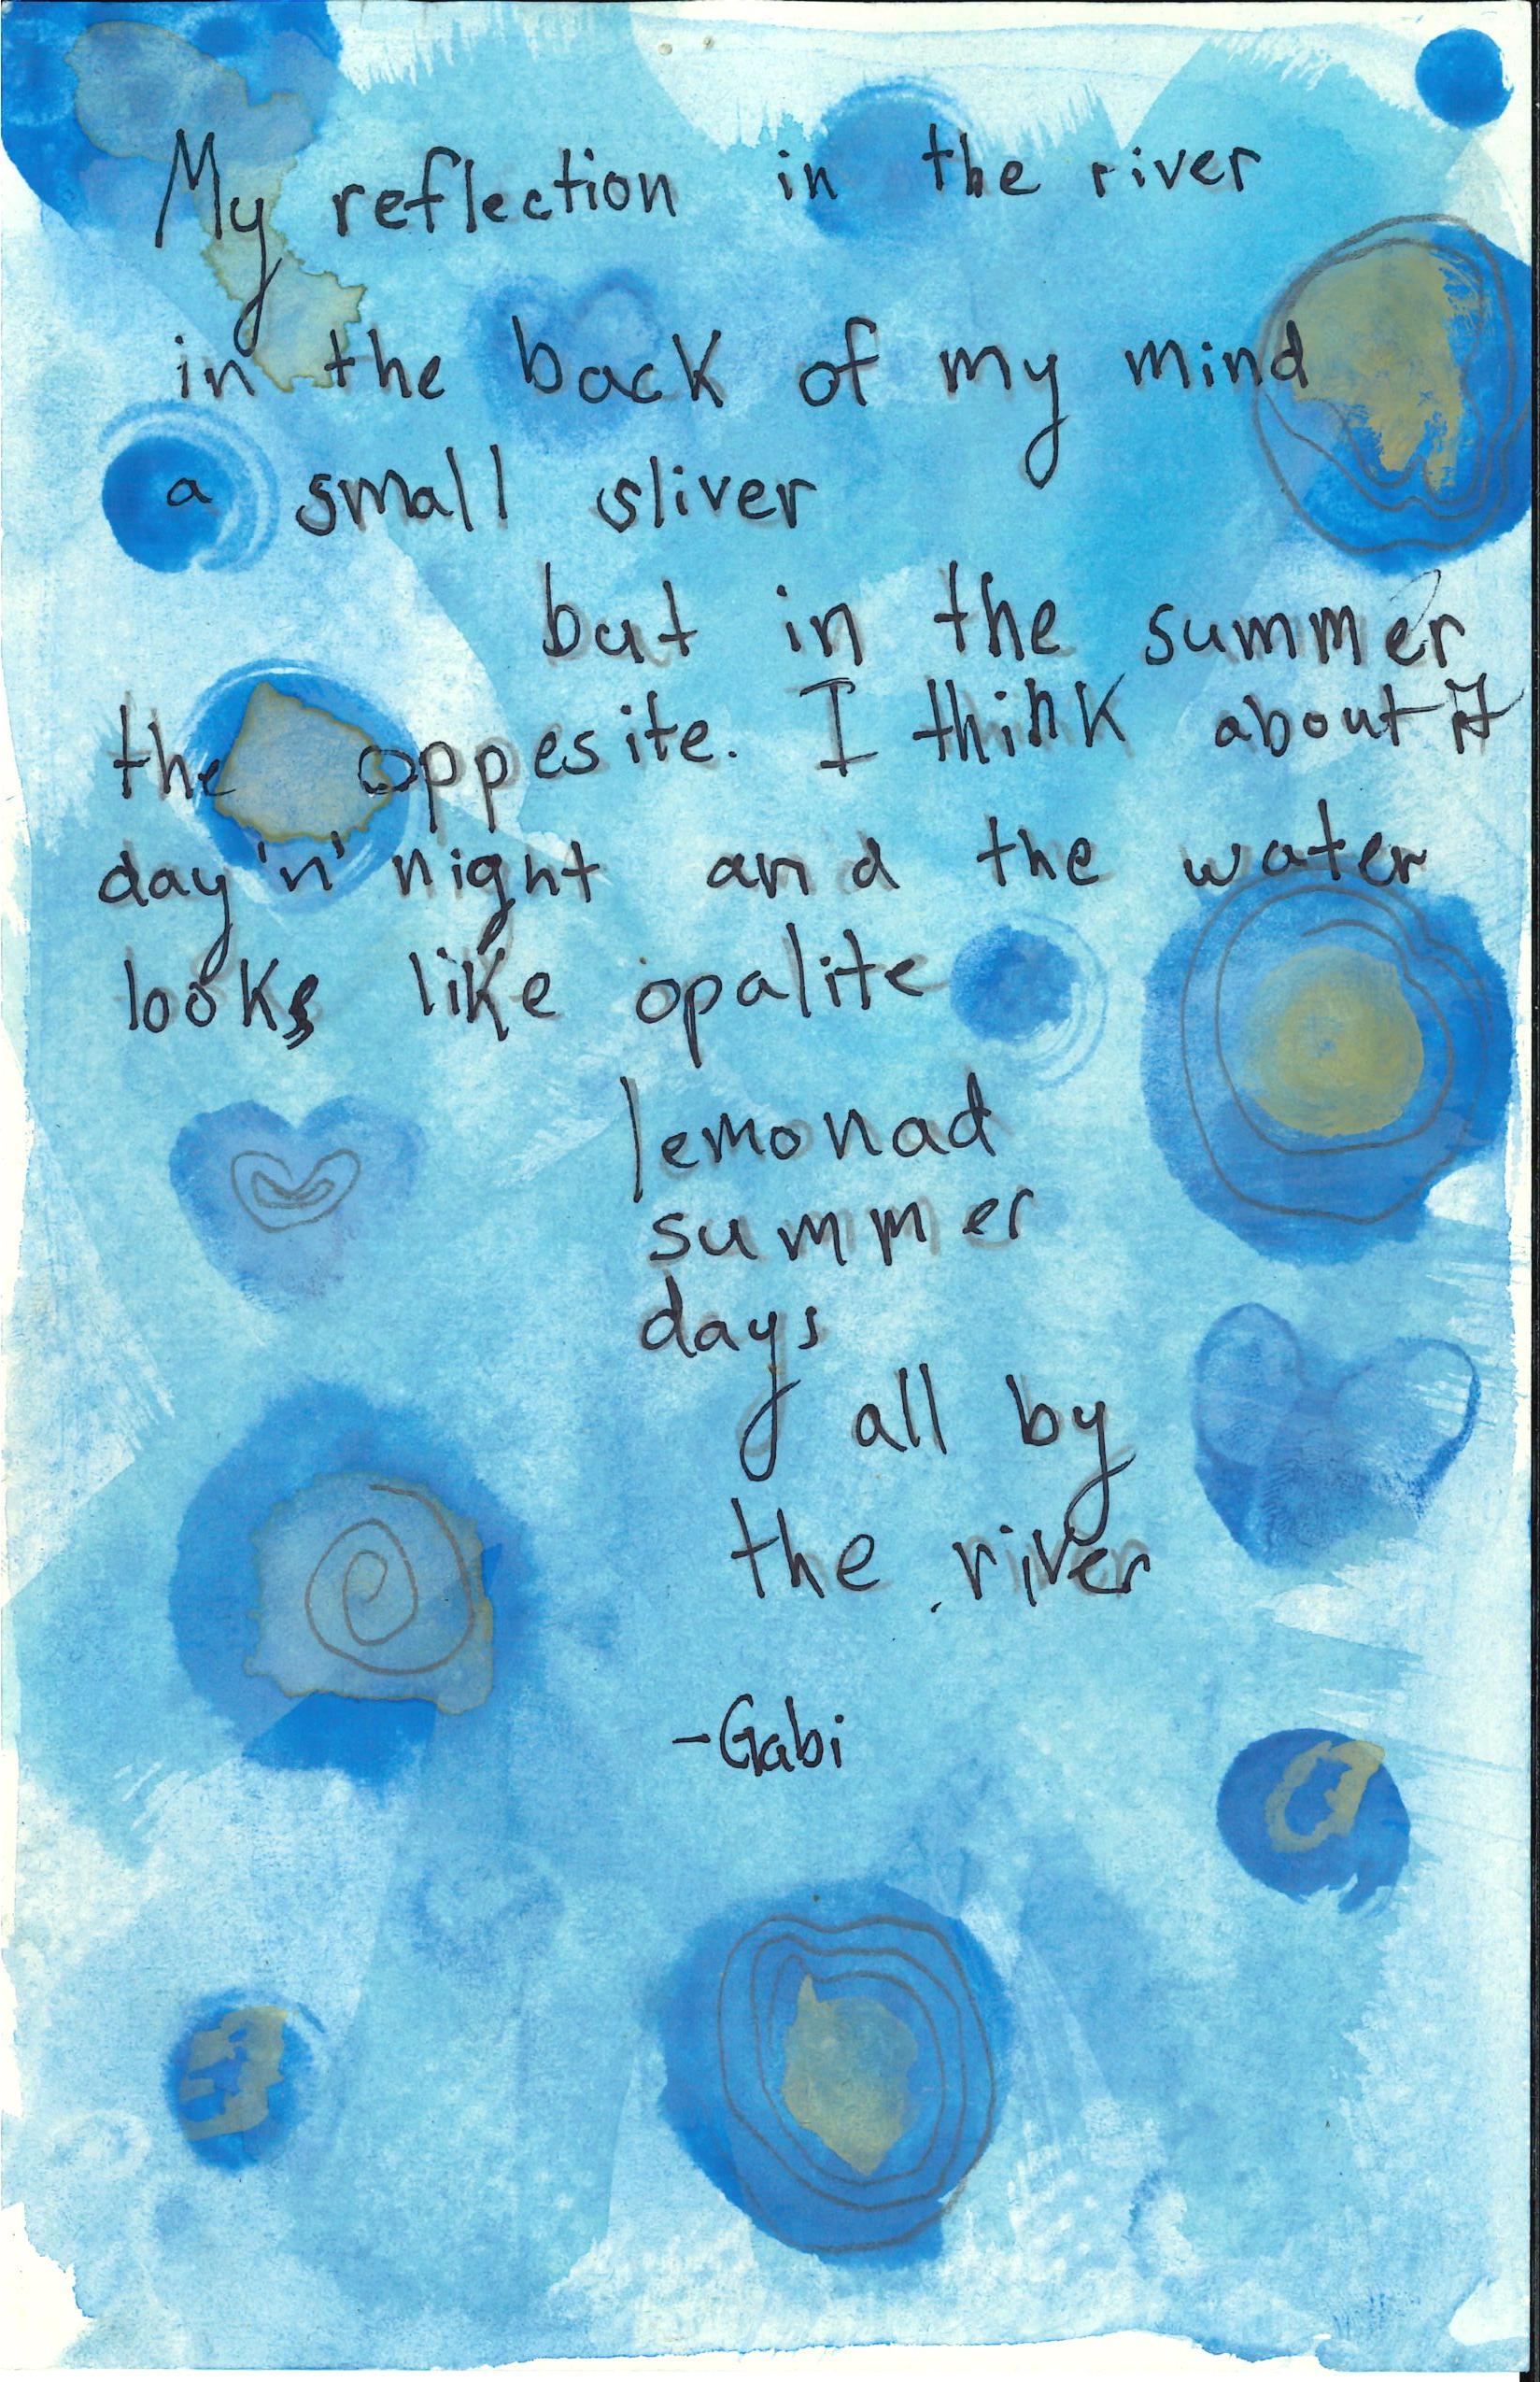 My reflection in the river
in the back of my mind
a small sliver
but in the summer
the oppesite. I think about it
day 'n' night and the water
looks like opalite
lemonad
summer
days
all by
the river
-Gabi